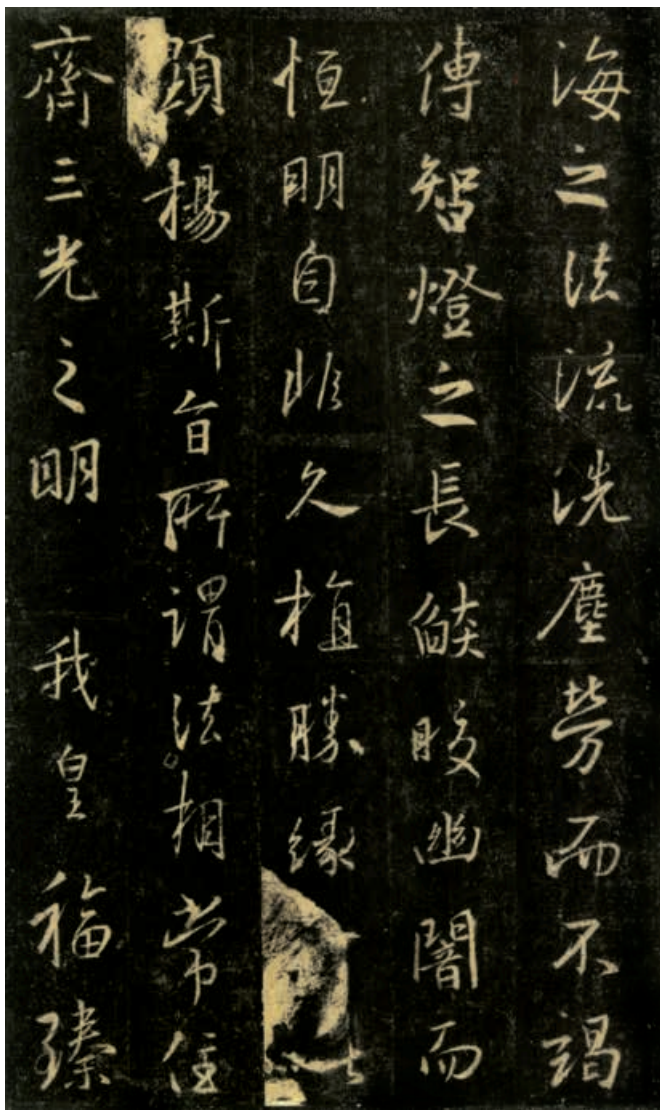 海之法流洗塵勞而不竭
傳智燈之長燄皎幽闇而
恒明自非久植勝緣
顯揚斯旨所謂法相常住
齊三光之明 我皇福臻